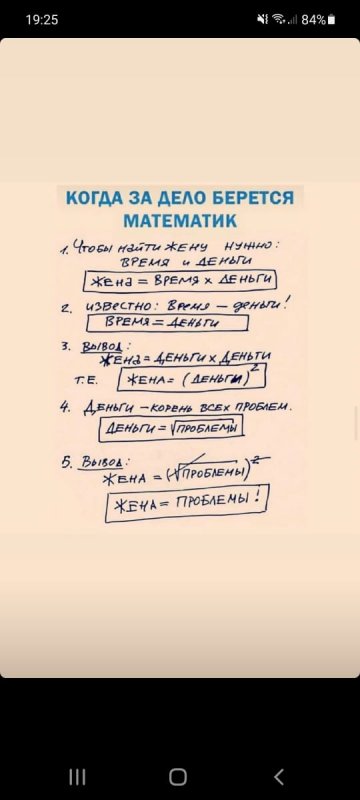 19:25
84%
КОГДА ЗА ДЕЛО БЕРЕТСЯ
МАТЕМАТИК
1. Чтобы найти жену нужно:
время и деньги
Жена = время х деньги
2. Известно: время – деньги!
Время = деньги
3. Вывод:
Жена = деньги х деньги
т.е. Жена = (деньги)²
4. Деньги – корень всех проблем.
Деньги = √проблемы
5. Вывод:
Жена = (√проблемы)²
Жена = проблемы!